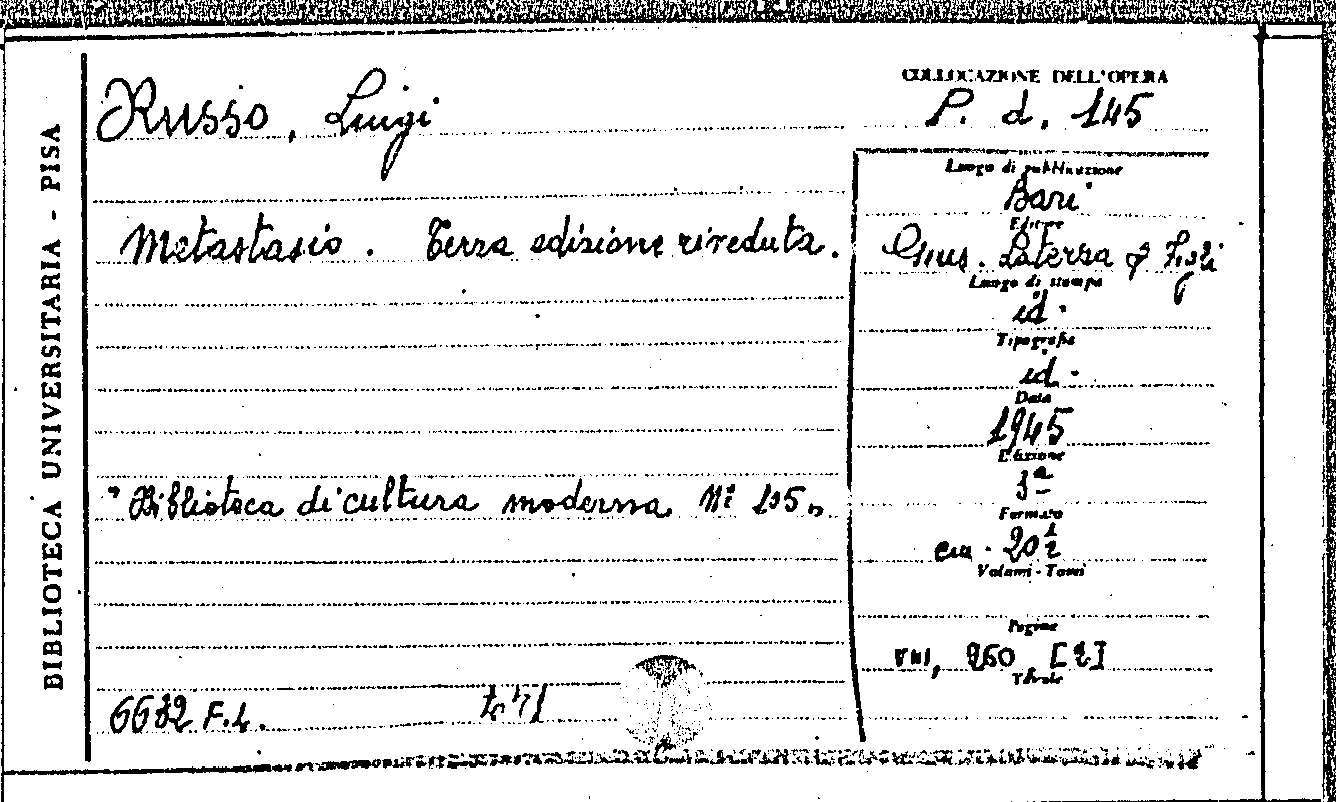 BIBLIOTECA UNIVERSITARIA - PISA
Russo, Luigi
COLLOCAZIONE DELL'OPERA
P. d. 145
Metastasio. Terza edizione riveduta.
"Biblioteca di cultura moderna N°
Luogo di pubblicazione
Bari
Editore
Gius. Laterza & Figli
Luogo di stampa
id.
Tipografia
id.
Data
1945
Edizione
3ª
Formato
cm. 20½
Volumi - Tomi
Pagine
VIII, 260, [2]
Tavole
F.L.